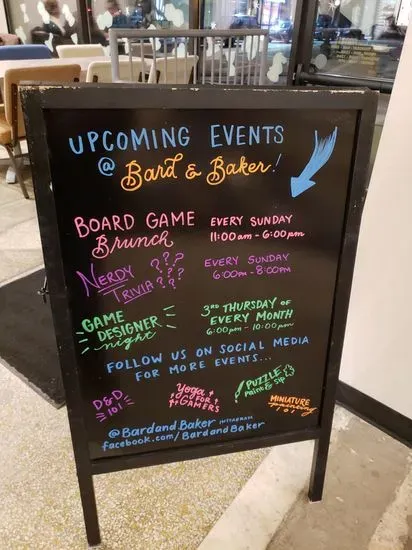 UPCOMING EVENTS
@ Bard & Baker!
BOARD GAME
Brunch
EVERY SUNDAY
11:00 am - 6:00 pm
NERDY
TRIVIA
???
???
EVERY SUNDAY
6:00 pm - 8:00 pm
GAME
DESIGNER
night
3RD THURSDAY OF
EVERY MONTH
6:00 pm - 10:00 pm
FOLLOW US ON SOCIAL MEDIA
FOR MORE EVENTS...
D&D
101
Yoga
FOR
GAMERS
PUZZLE
Paint & Sip
MINIATURE
painting
101
@BardandBaker INSTAGRAM
facebook.com/BardandBaker